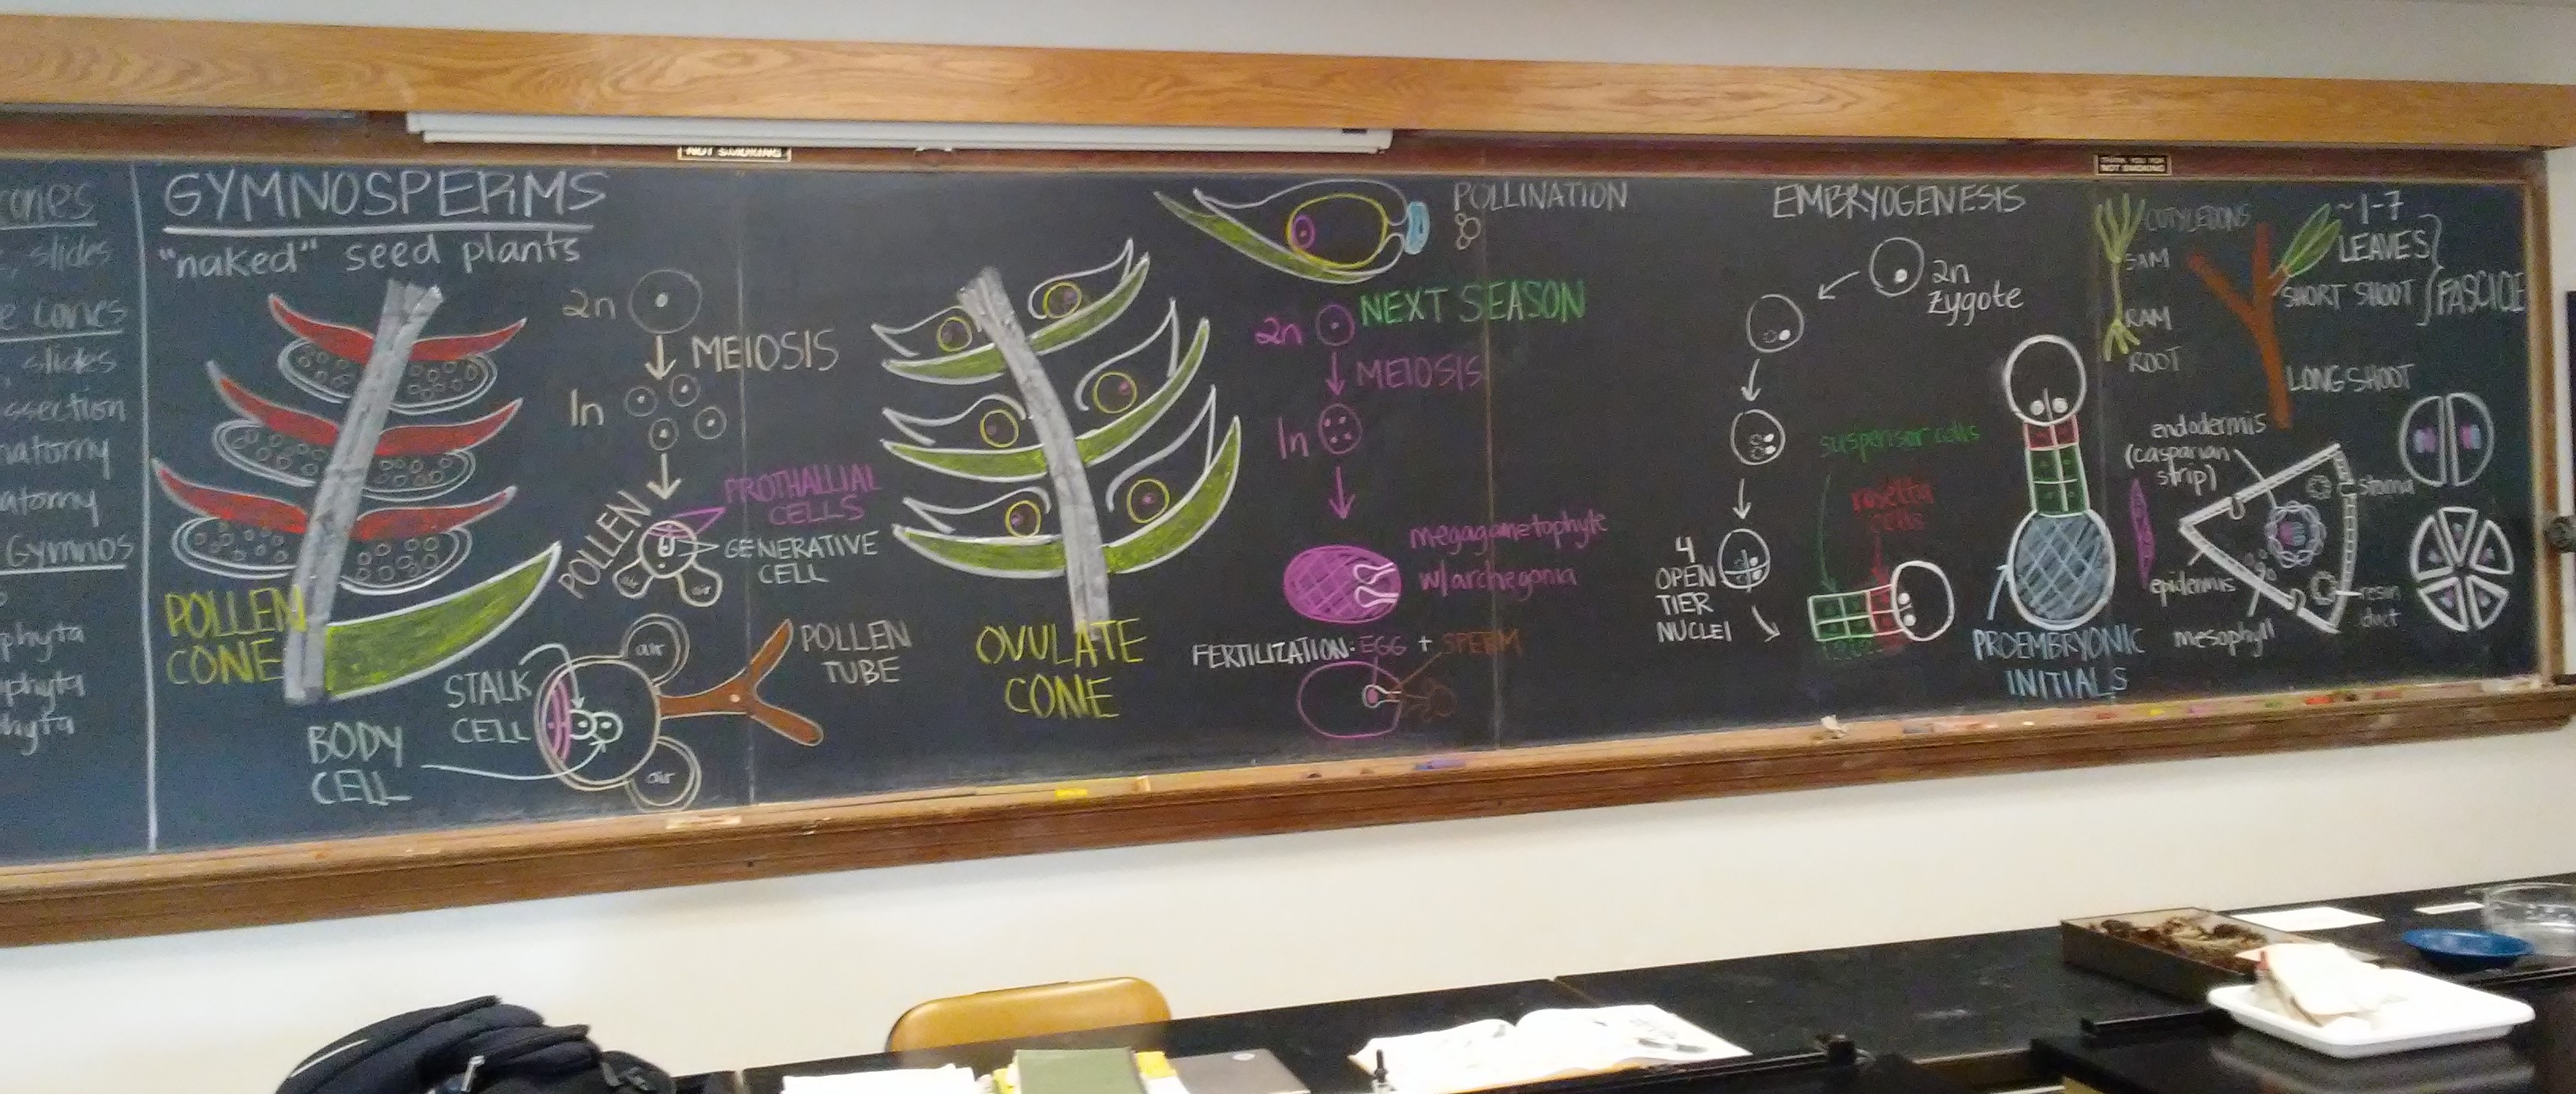 NOT SMOKING
THANK YOU FOR
NOT SMOKING
cones
slides
cones
slides
Gymnos
phyta
phyta
phyta
GYMNOSPERMS
"naked" seed plants
POLLEN
CONE
2n
MEIOSIS
1n
POLLEN
PROTHALLIAL
CELLS
GENERATIVE
CELL
air
air
STALK
CELL
BODY
CELL
air
air
POLLEN
TUBE
OVULATE
CONE
POLLINATION
NEXT SEASON
2n
MEIOSIS
1n
megagametophyte
w/archegonia
FERTILIZATION: EGG + SPERM
EMBRYOGENESIS
2n
zygote
4
OPEN
TIER
NUCLEI
suspensor cells
rosette
cells
PROEMBRYONIC
INITIALS
COTYLEDONS
SAM
RAM
ROOT
~1-7
LEAVES
SHORT SHOOT
FASCICLE
LONG SHOOT
endodermis
(casparian
strip)
stoma
epidermis
resin
duct
mesophyll